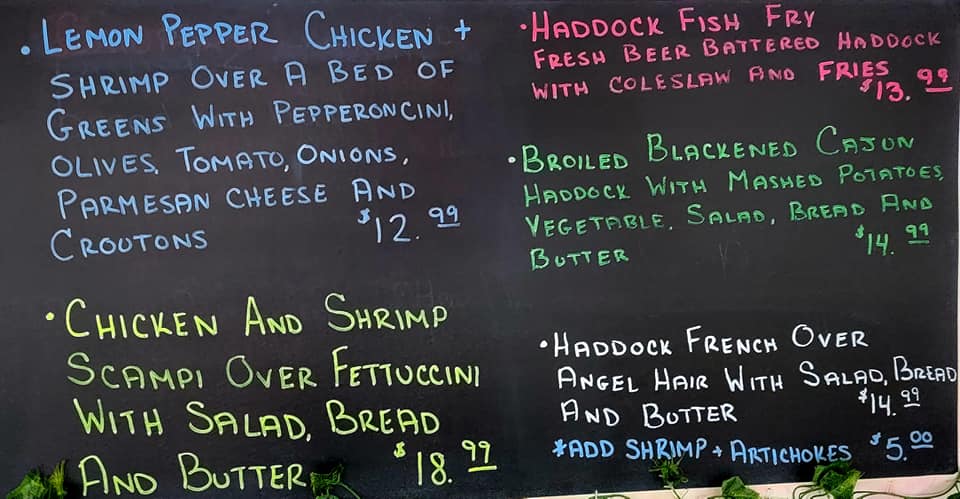 • LEMON PEPPER CHICKEN +
SHRIMP OVER A BED OF
GREENS WITH PEPPERONCINI,
OLIVES, TOMATO, ONIONS,
PARMESAN CHEESE AND
CROUTONS $12.99
• CHICKEN AND SHRIMP
SCAMPI OVER FETTUCCINI
WITH SALAD, BREAD
AND BUTTER $18.99
• HADDOCK FISH FRY
FRESH BEER BATTERED HADDOCK
WITH COLESLAW AND FRIES
$13.99
• BROILED BLACKENED CAJUN
HADDOCK WITH MASHED POTATOES,
VEGETABLE, SALAD, BREAD AND
BUTTER $14.99
• HADDOCK FRENCH OVER
ANGEL HAIR WITH SALAD, BREAD
AND BUTTER $14.99
*ADD SHRIMP + ARTICHOKES $5.00